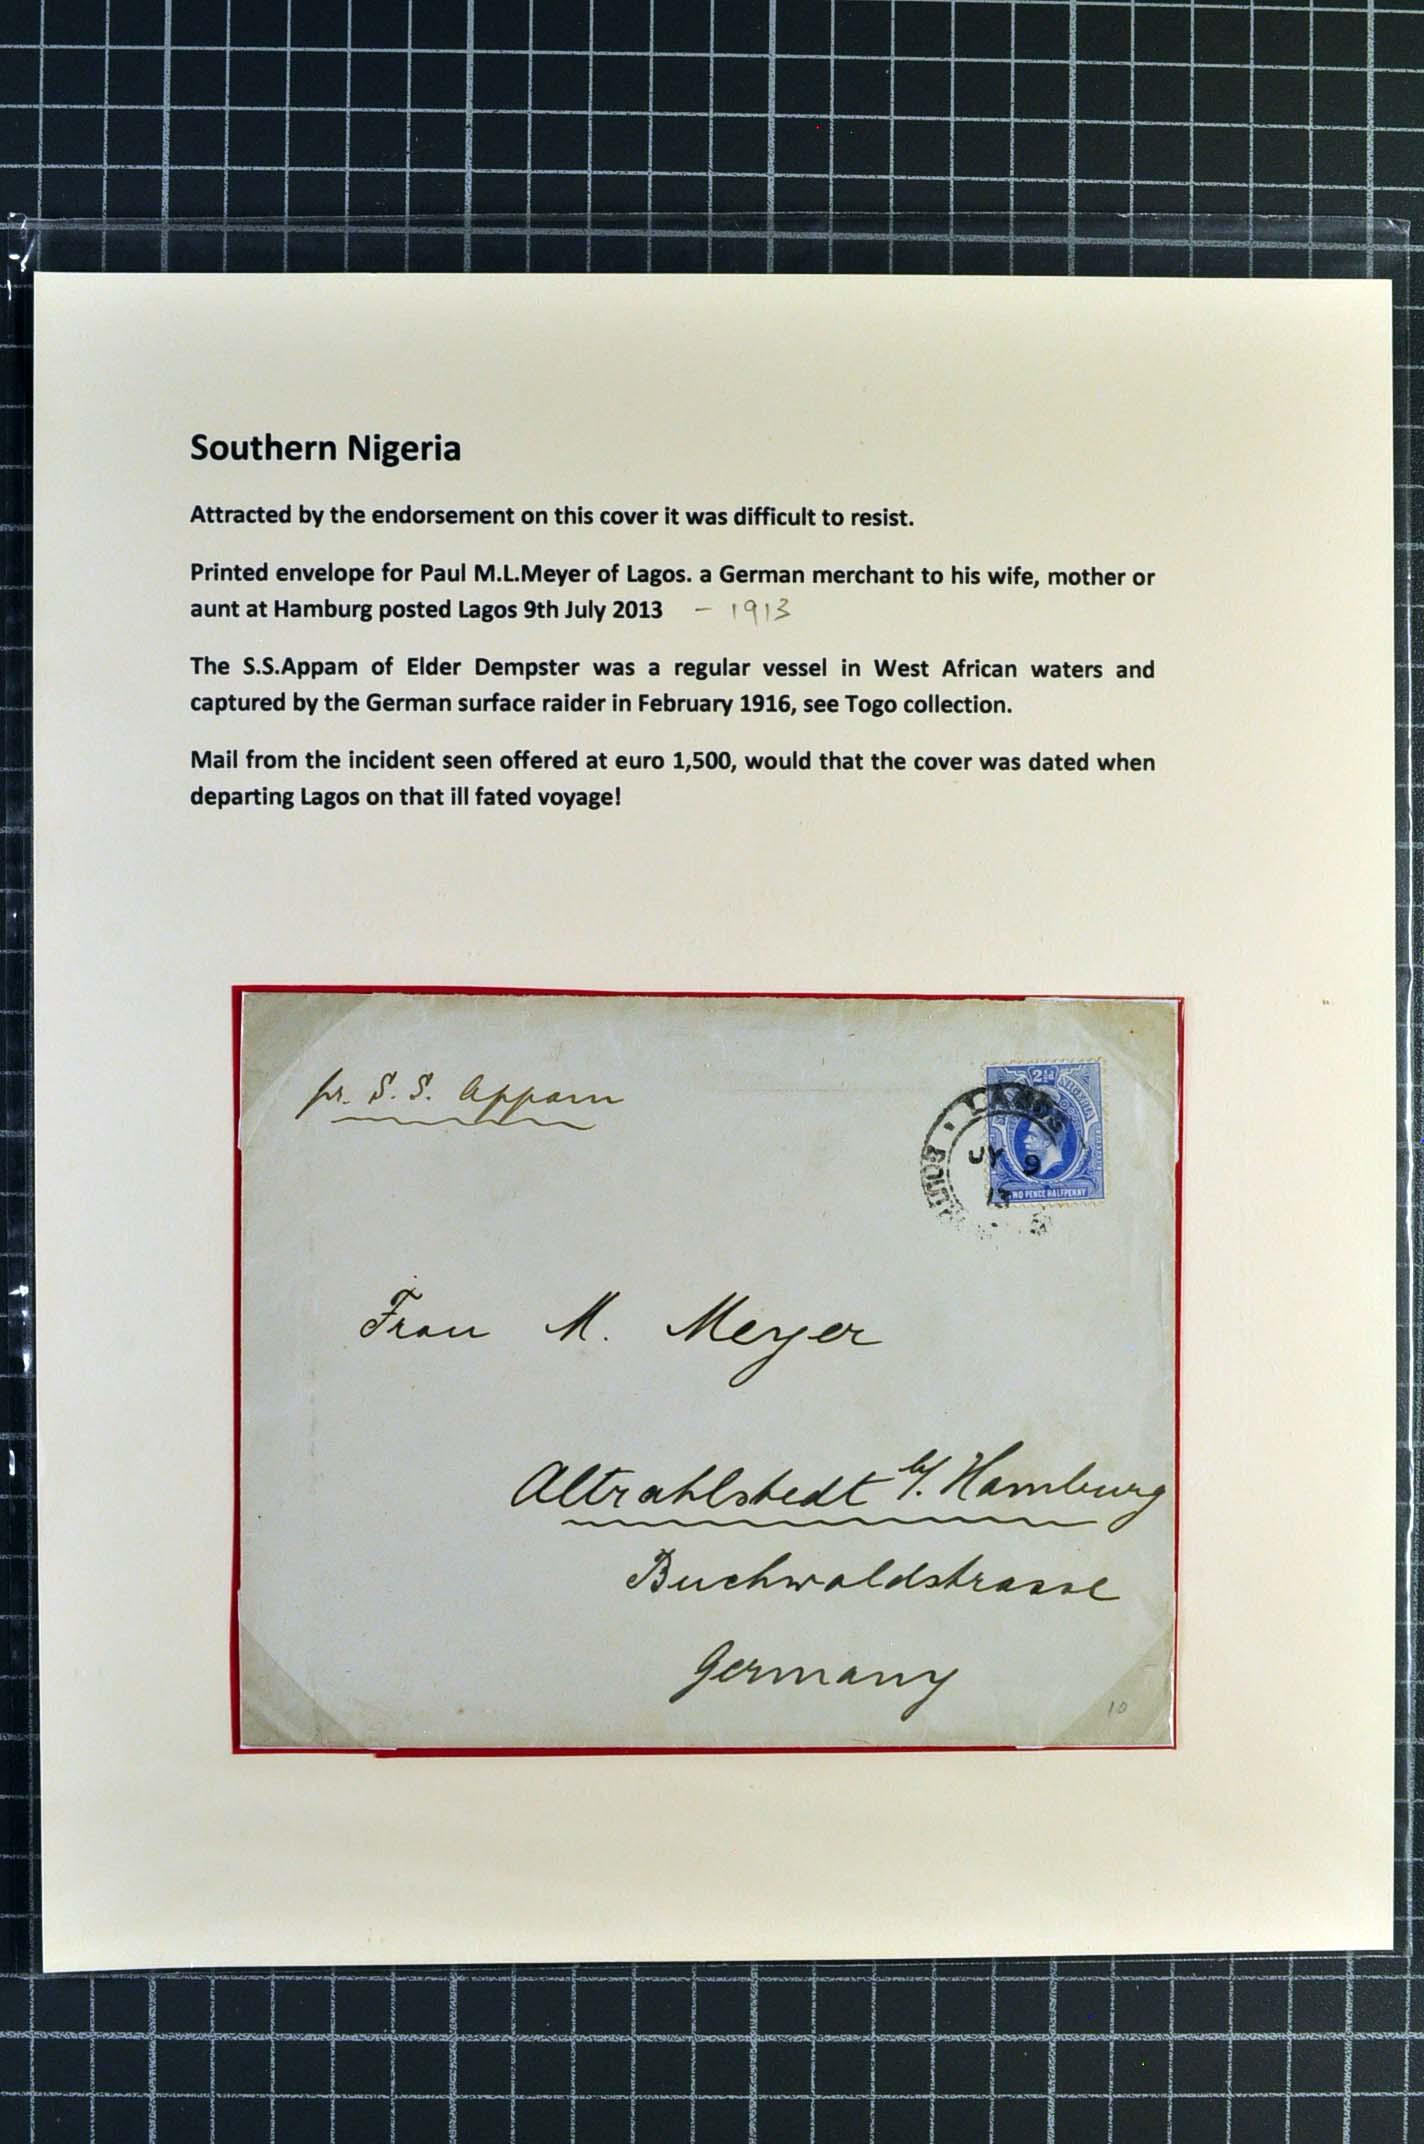 Southern Nigeria
Attracted by the endorsement on this cover it was difficult to resist.
Printed envelope for Paul M.L.Meyer of Lagos. a German merchant to his wife, mother or
aunt at Hamburg posted Lagos 9th July 2013 - 1913
The S.S.Appam of Elder Dempster was a regular vessel in West African waters and
captured by the German surface raider in February 1916, see Togo collection.
Mail from the incident seen offered at euro 1,500, would that the cover was dated when
departing Lagos on that ill fated voyage!
pr. S. S. Appam
2½d
NIGERIA
LAGOS
JY 9
13
TWO PENCE HALFPENNY
Frau M. Meyer
Altrahlstedt b/. Hamburg
Buchwaldstrasse
Germany
10